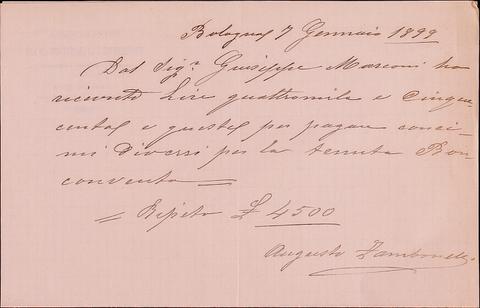 Bologna 7 Gennaio 1899
Dal Sigr. Giuseppe Marconi ho
ricevuto Lire quattromila e Cinque
cento e queste per pagare conci
mi diversi per la tenuta Bon
convento
= Ripeto £ 4500
Augusto